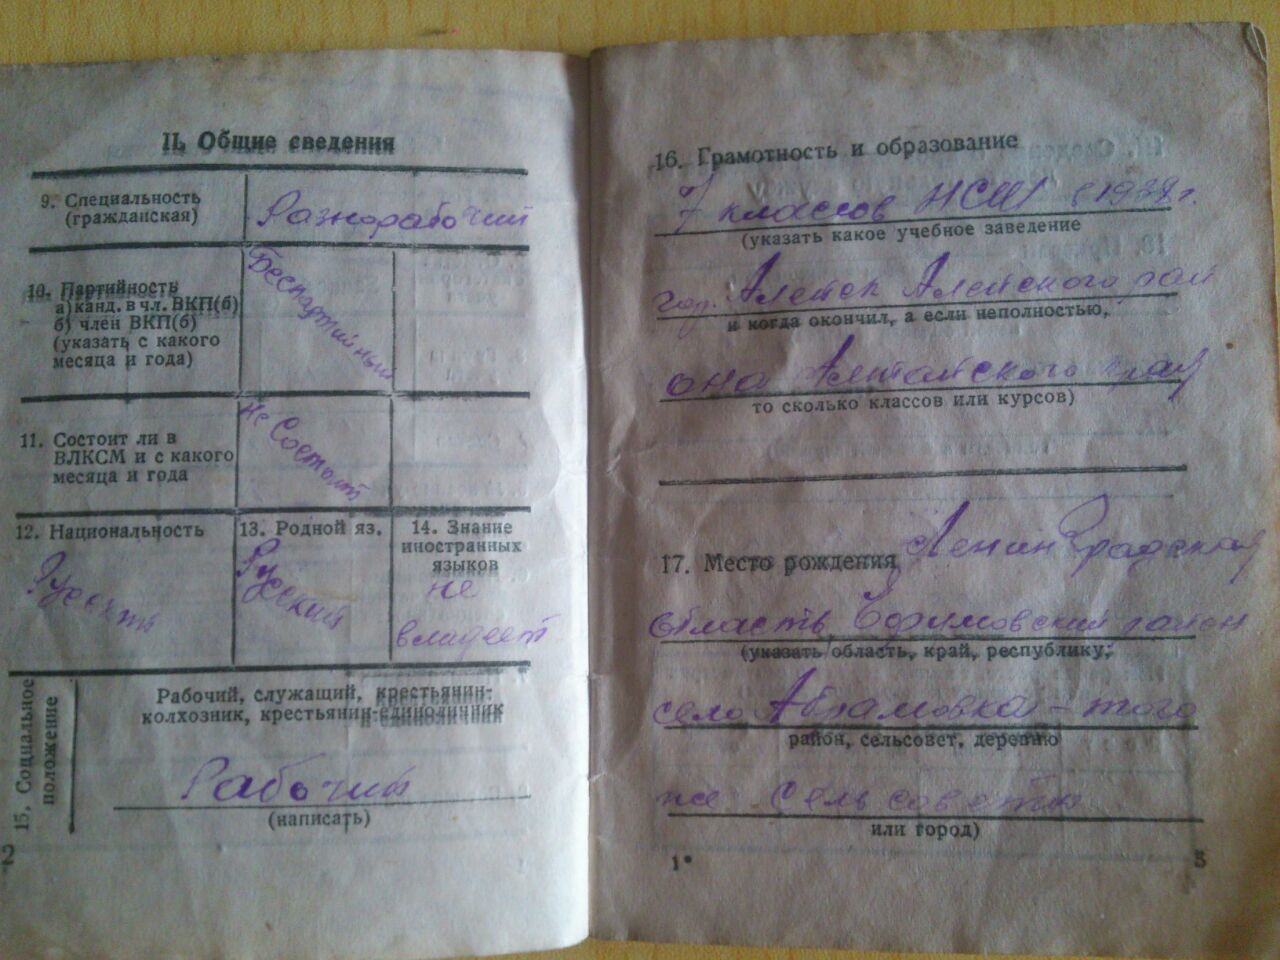 II. Общие сведения
9. Специальность
(гражданская)
Разнорабочий
10. Партийность
а) канд. в чл. ВКП(б)
б) член ВКП(б)
(указать с какого
месяца и года)
Беспартийный
11. Состоит ли в
ВЛКСМ и с какого
месяца и года
Не Состоит
12. Национальность
Русский
13. Родной яз.
Русский
14. Знание
иностранных
языков
не
владеет
15. Социальное
положение
Рабочий, служащий, крестьянин-
колхозник, крестьянин-единоличник
Рабочий
(написать)
2
16. Грамотность и образование
7 классов НСШ в г.
(указать какое учебное заведение
гор. Алейск Алейского рай
и когда окончил, а если неполностью,
она Алтайского края
то сколько классов или курсов)
17. Место рождения Ленинградская
область район
(указать область, край, республику,
село Абрамовка - того
район, сельсовет, деревню
же сель совета
или город)
1*